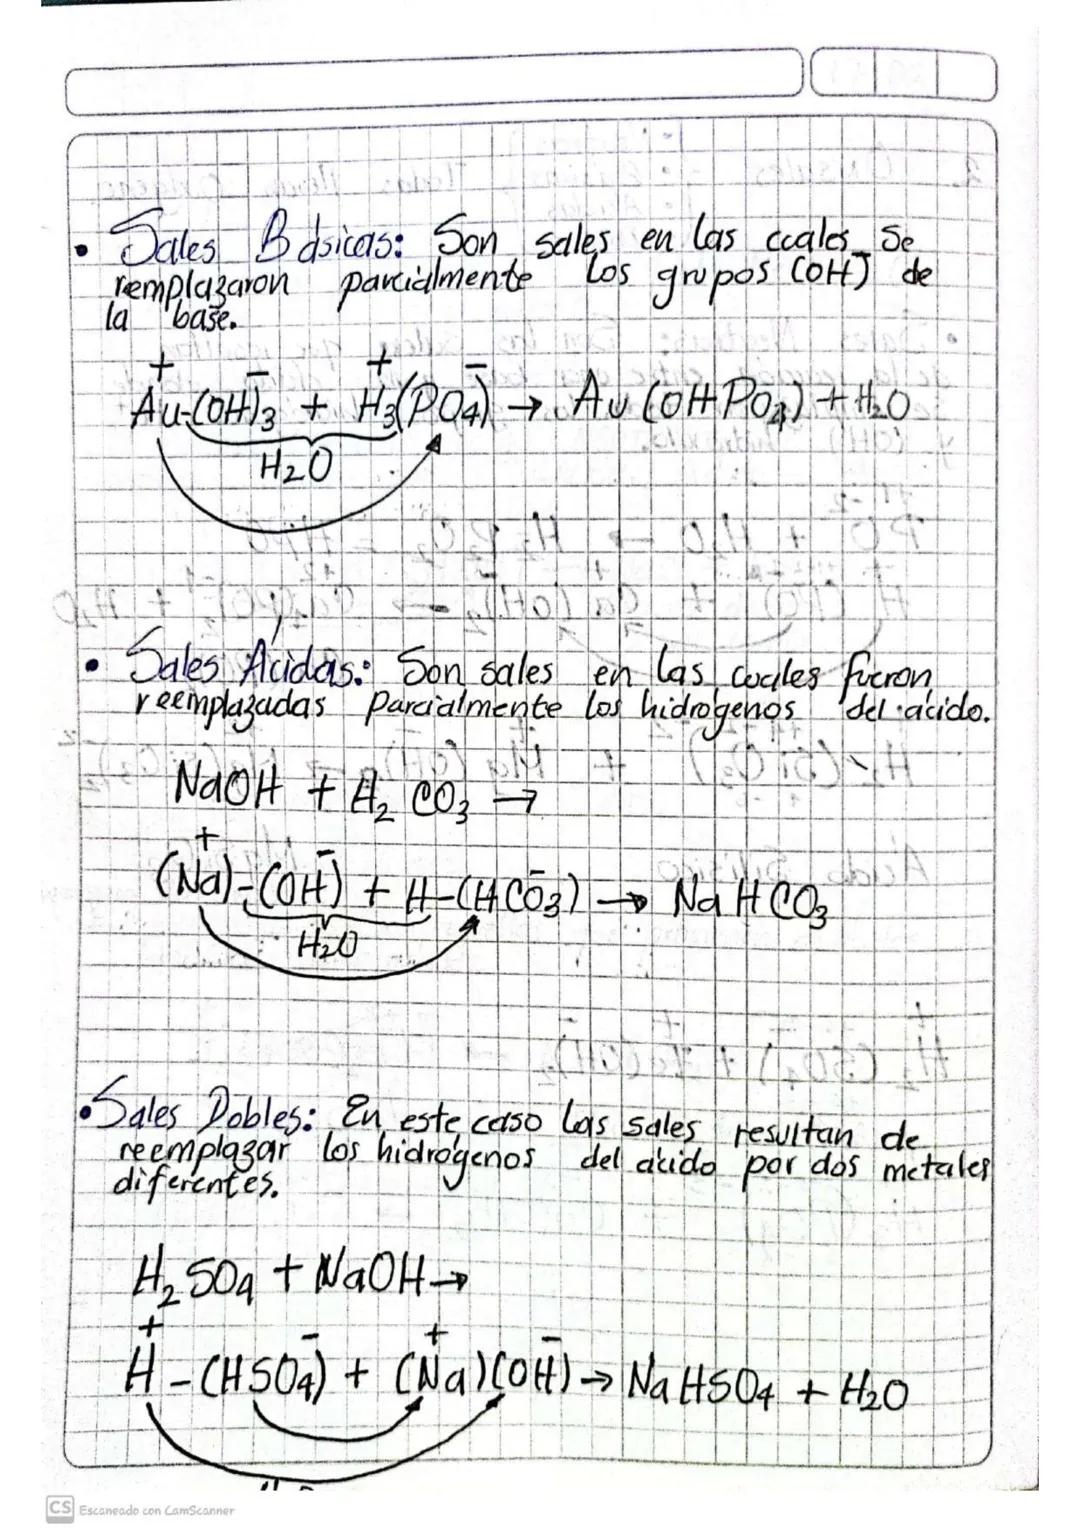 • Sales Básicas: Son sales en las ccales se
remplazaron parcialmente los grupos (OH) de
la base.
+ - + -
Au-(OH)3 + H3(PO4) → Au (OHPO4) + H2O
H2O
• Sales Ácidas: Son sales en las cuales fueron
reemplazadas parcialmente los hidrogenos del acido.
NaOH + H2 CO3 →
+ - -
(Na)-(OH) + H-(HCO3) → Na HCO3
H2O
• Sales Dobles: En este caso las sales resultan de
reemplazar los hidrógenos del acido por dos metales
diferentes.
H2 SO4 + NaOH →
+ - + -
H-(HSO4) + (Na)(OH) → NaHSO4 + H2O
CS Escaneado con CamScanner